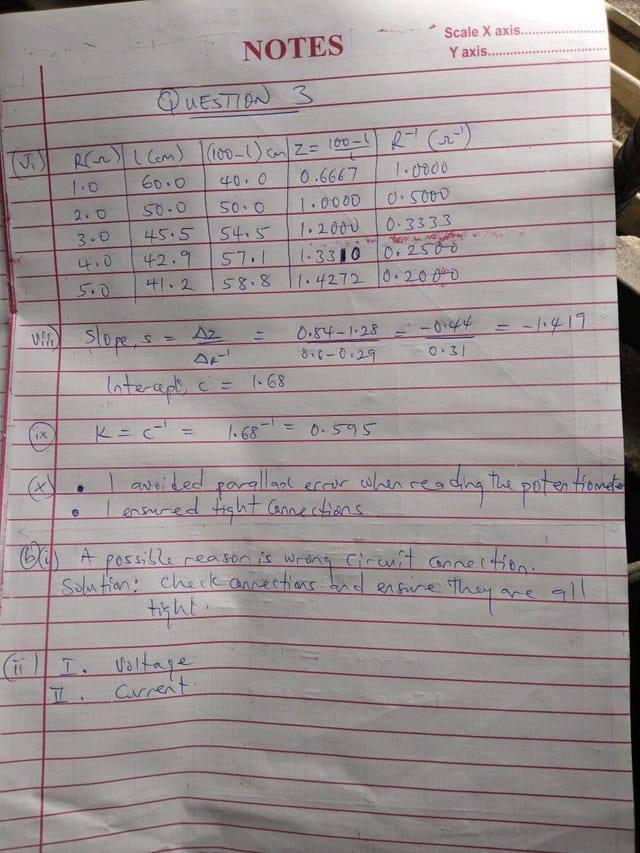 Scale X axis......................
NOTES
Y axis..............................
QUESTION 3
(vi) R(Ω) l (cm) (100-l) cm Z = 100-l/l R⁻¹ (Ω⁻¹)
1.0 60.0 40.0 0.6667 1.0000
2.0 50.0 50.0 1.0000 0.5000
3.0 45.5 54.5 1.2000 0.3333
4.0 42.9 57.1 1.3310 0.2500
5.0 41.2 58.8 1.4272 0.2000
viii) Slope, s = ΔZ/ΔR⁻¹ = 0.84-1.28/0.6-0.29 = -0.44/0.31 = -1.419
Intercept, c = 1.68
(ix) K = c⁻¹ = 1.68⁻¹ = 0.595
(x) • I avoided parallax error when reading the potentiometer
• I ensured tight connections
(b)(i) A possible reason is wrong circuit connection.
Solution: Check connections and ensure they are all
tight.
(ii) I. Voltage
II. Current.